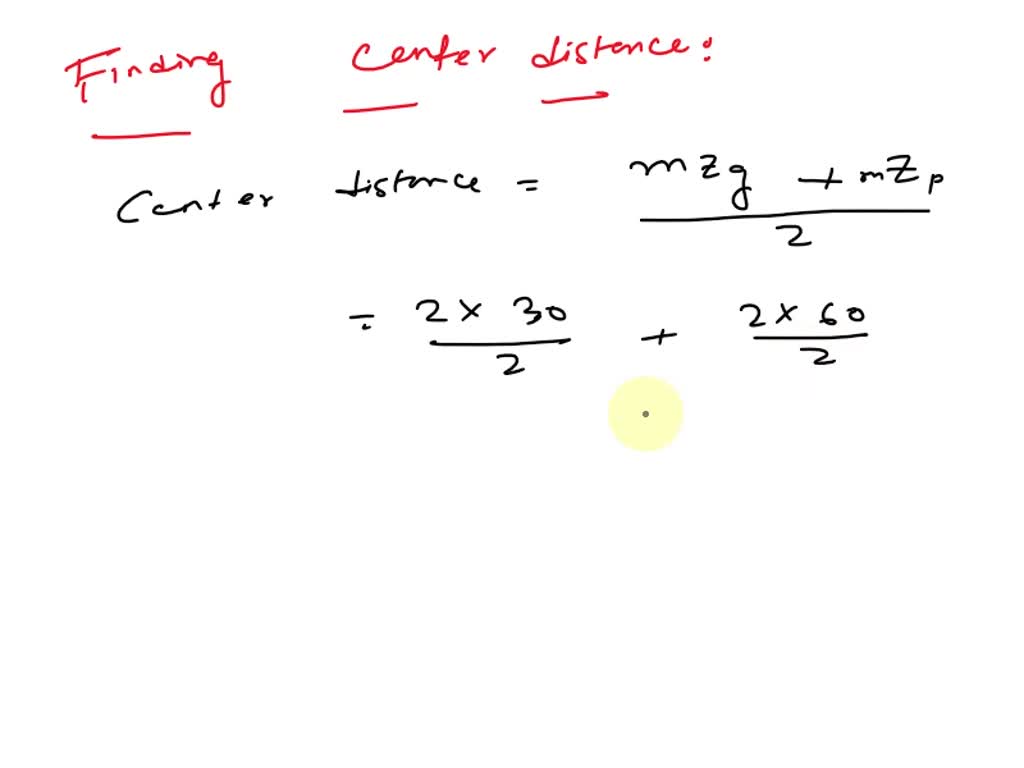 Finding center distance:
Center distance = mZg + mZp / 2
= 2 × 30 / 2 + 2 × 60 / 2